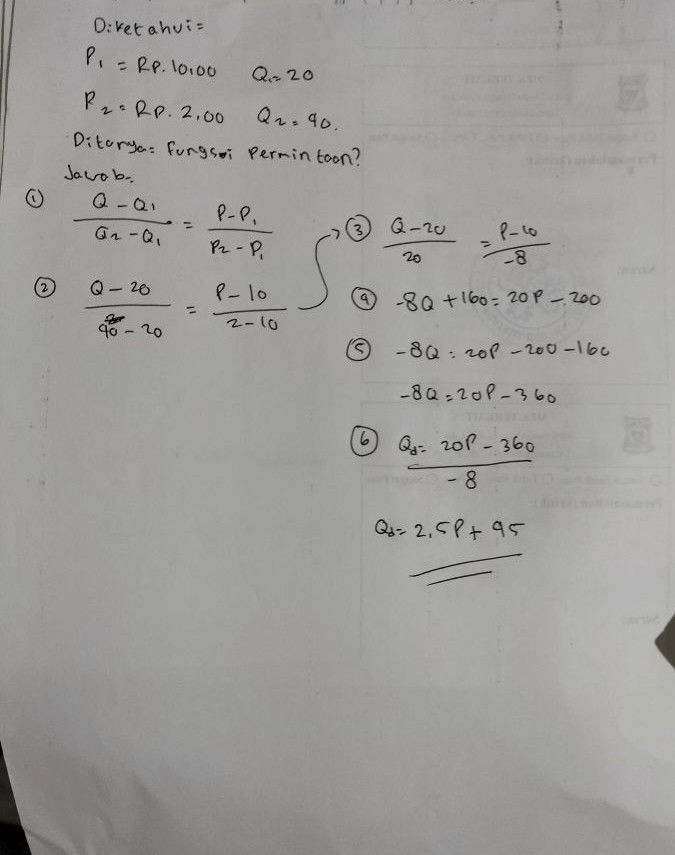 Diketahui=
P1 = Rp. 10,00 Q1 = 20
P2 = Rp. 2,00 Q2 = 40.
Ditanya= Fungsoi Permintaan?
Jawab=
① Q - Q1 / Q2 - Q1 = P - P1 / P2 - P1
② Q - 20 / 40 - 20 = P - 10 / 2 - 10
③ Q - 20 / 20 = P - 10 / -8
④ -8Q + 160 = 20P - 200
⑤ -8Q = 20P - 200 - 160
-8Q = 20P - 360
⑥ Qd = 20P - 360 / -8
Qd = 2,5P + 45